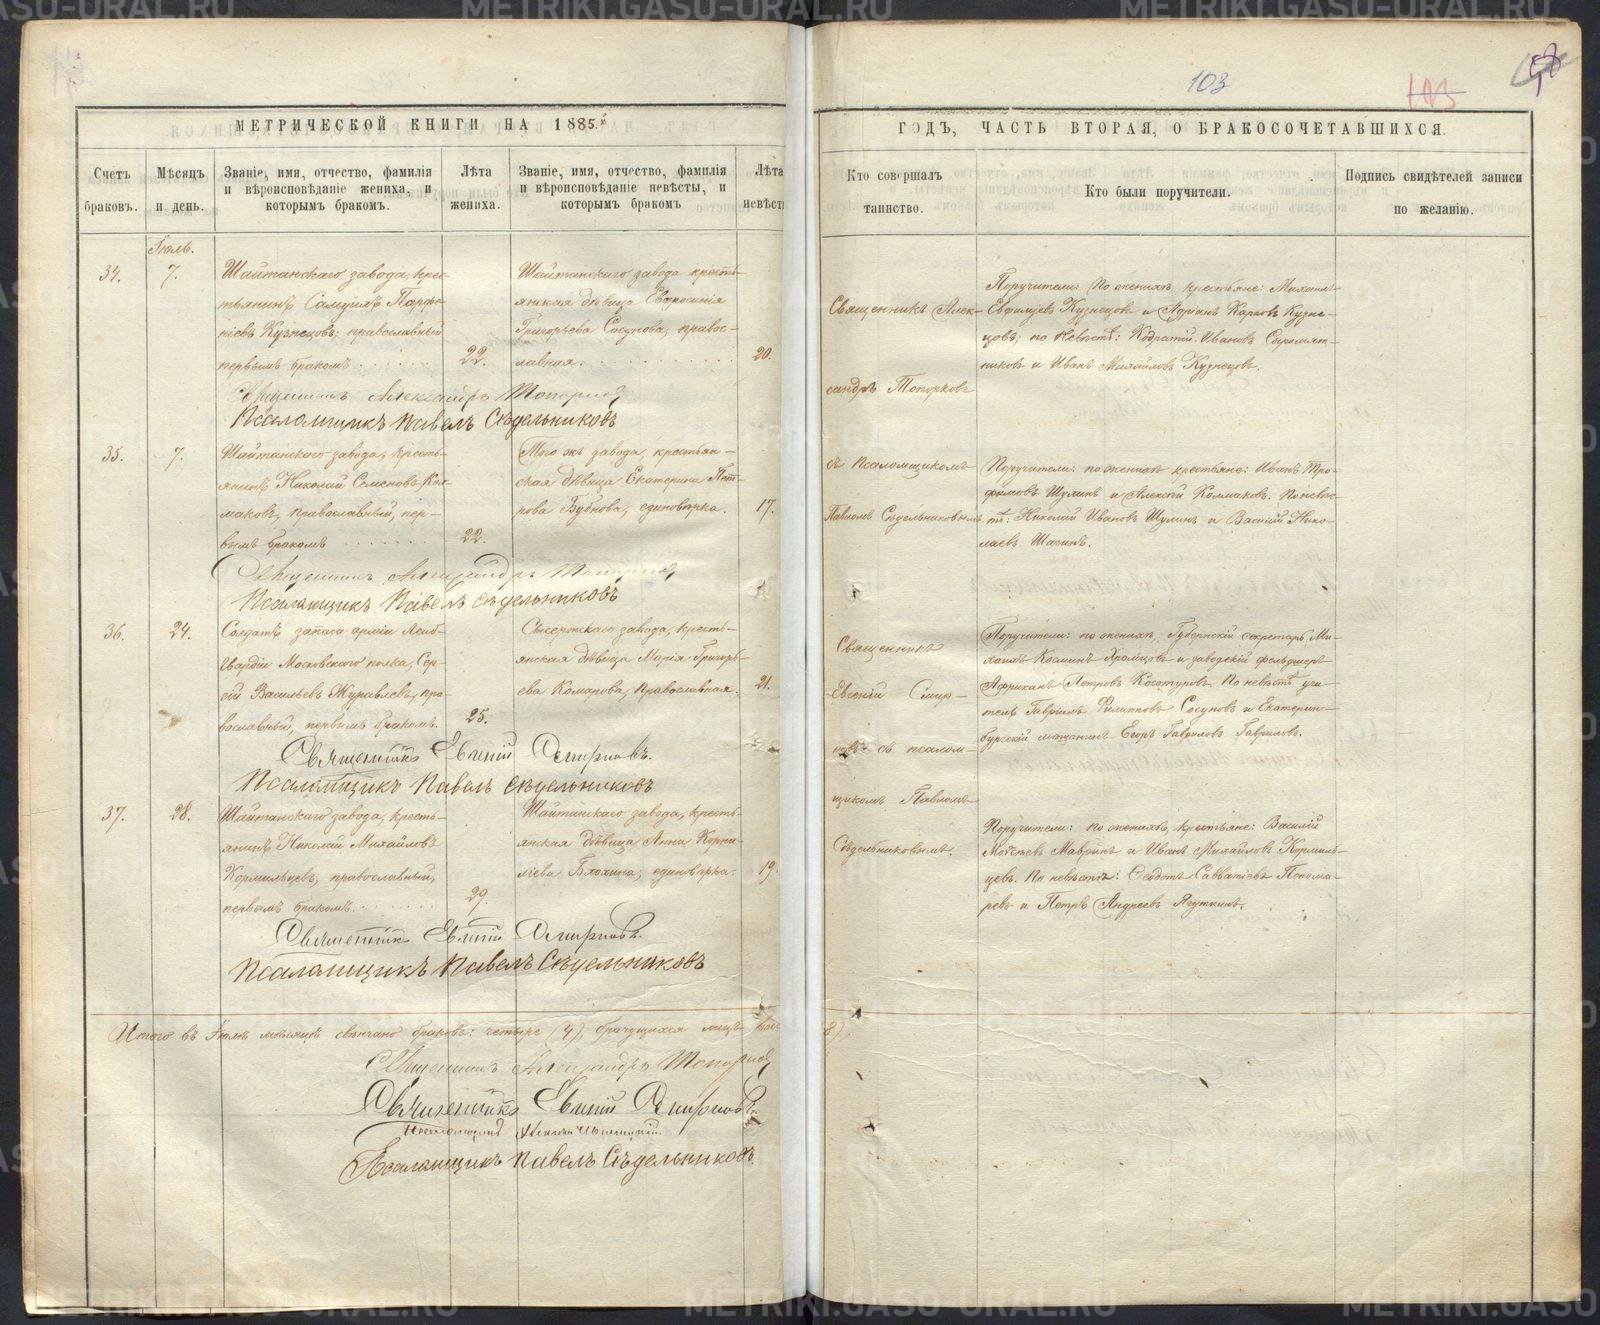 103
МЕТРИЧЕСКОЙ КНИГИ НА 1885й
ГОДЪ, ЧАСТЬ ВТОРАЯ, О БРАКОСОЧЕТАВШИХСЯ.
Счетъ браковъ.
Мѣсяцъ и день.
Званіе, имя, отчество, фамилія
и вѣроисповѣданіе жениха, и
которымъ бракомъ.
Лѣта жениха.
Званіе, имя, отчество, фамилія
и вѣроисповѣданіе невѣсты, и
которымъ бракомъ
Лѣта невѣсты
Кто совершалъ
таинство.
Кто были поручители.
Подпись свидѣтелей записи
по желанію.
Іюль.
34. 7.
Шайтанскаго завода, крес-
тьянинъ Самуилъ Парфе-
ніевъ Кузнецовъ; православный
первымъ бракомъ
22.
Шайтанскаго завода кресть-
янская дѣвица Евфросинія
Григорьева Сосунова, правос-
лавная.
20.
Священникъ Алек-
сандръ Топорковъ
Поручители: По женихѣ крестьяне: Михаилъ
Евфимьевъ Кузнецовъ и Адріанъ Карповъ Кузне-
цовъ; по невѣстѣ: Кодратій Ивановъ Сыромят-
никовъ и Иванъ Михайловъ Кузнецовъ.
Священникъ Александръ Топорковъ
Псаломщикъ Павелъ Сѣдельниковъ
35. 7.
Шайтанскаго завода, кресть-
янинъ Николай Семеновъ Кол-
маковъ, православный, пер-
вымъ бракомъ
22.
Того же завода, крестьян-
ская дѣвица Екатерина Пет-
рова Бубнова, единовѣрка.
17.
съ Псаломщикомъ
Павломъ Сѣдельниковымъ.
Поручители: по женихѣ крестьяне: Иванъ Тро-
фимовъ Шулинъ и Алексѣй Колмаковъ. По невѣс-
тѣ: Николай Ивановъ Шулинъ и Василій Нико-
лаевъ
Священникъ Александръ Топорковъ
Псаломщикъ Павелъ Сѣдельниковъ
36. 24.
Солдатъ запаса арміи Лейб-
Гвардіи Московскаго полка, Сер-
гѣй Васильевъ Журавлевъ, пра-
вославный, первымъ бракомъ.
25.
Сысертскаго завода, кресть-
янская дѣвица Марія Григорь-
ева Комарова, православная.
21.
Священникъ
Евгеній Смир-
новъ съ псалом-
щикомъ Павломъ
Сѣдельниковымъ.
Поручители: по женихѣ, Губернскій секретарь Ми-
хаилъ Космимъ Хромцовъ и заводскій фельдшеръ
Африканъ Петровъ Косотуровъ. По невѣстѣ учи-
тель Гавріилъ Филипповъ Сосуновъ и Екатерин-
бургскій мѣщанинъ Егоръ Гавриловъ Гавриловъ.
Священникъ Евгеній Смирновъ.
Псаломщикъ Павелъ Сѣдельниковъ
37. 28.
Шайтанскаго завода, кресть-
янинъ Николай Михайловъ
Кормильцевъ, православный,
первымъ бракомъ
29.
Шайтанскаго завода, кресть-
янская дѣвица Анна Корни-
ліева Блохина, единовѣрка.
19.
Поручители: по женихѣ, крестьяне: Василій
Моѵсеевъ Мавринъ и Иванъ Михайловъ Кормиль-
цевъ. По невѣстѣ: Ѳеодотъ Савватіевъ Понома-
ревъ и Петръ Андреевъ Ягуткинъ.
Священникъ Евгеній Смирновъ.
Псаломщикъ Павелъ Сѣдельниковъ
Итого въ Іюлѣ мѣсяцѣ свѣнчано браковъ: четыре (4), брачущихся лицъ 8).
Священникъ Александръ Топорковъ
Священникъ Евгеній Смирновъ
Псаломщикъ Павелъ Сѣдельниковъ
METRIKI.GASO-URAL.RU